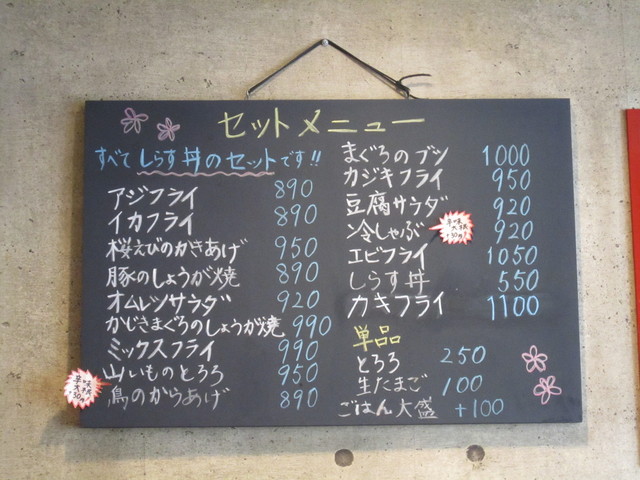 セットメニュー
すべてしらす丼のセットです!!
アジフライ 890
イカフライ 890
桜えびのかきあげ 950
豚のしょうが焼 890
オムレツサラダ 920
かじきまぐろのしょうが焼 990
ミックスフライ 990
山いものとろろ 950
鳥のからあげ 890
まぐろのブツ 1000
カジキフライ 950
豆腐サラダ 920
冷しゃぶ 920
エビフライ 1050
しらす丼 550
カキフライ 1100
単品
とろろ 250
生たまご 100
ごはん大盛 +100